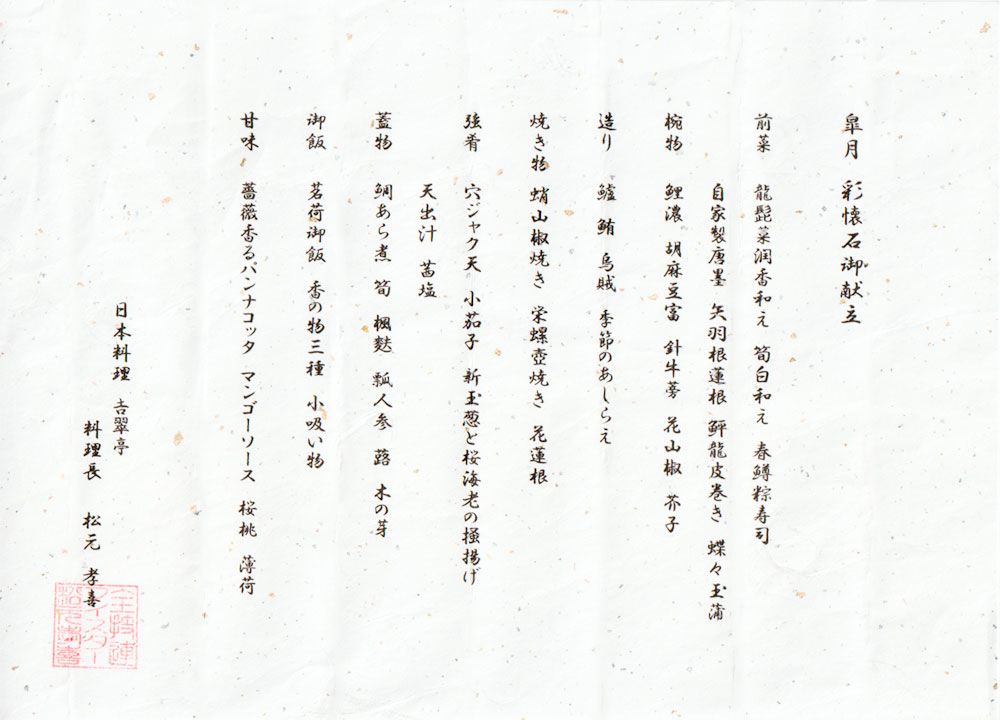 皐月 彩懐石御献立
前菜 龍髭菜潤香和え 筍白和え 春鱒粽寿司
自家製唐墨 矢羽根蓮根 鮃龍皮巻き 蝶々玉蒲
椀物 鯉濃 胡麻豆富 針牛蒡 花山椒 芥子
造り 鱸 鮪 烏賊 季節のあしらえ
焼き物 蛸山椒焼き 栄螺壺焼き 花蓮根
強肴 穴ジャク天 小茄子 新玉葱と桜海老の掻揚げ
天出汁 茜塩
蓋物 鯛あら煮 筍 楓麩 瓢人参 蕗 木の芽
御飯 茗荷御飯 香の物三種 小吸い物
甘味 薔薇香るパンナコッタ マンゴーソース 桜桃 薄荷
日本料理 吉翠亭
料理長 松元 孝喜